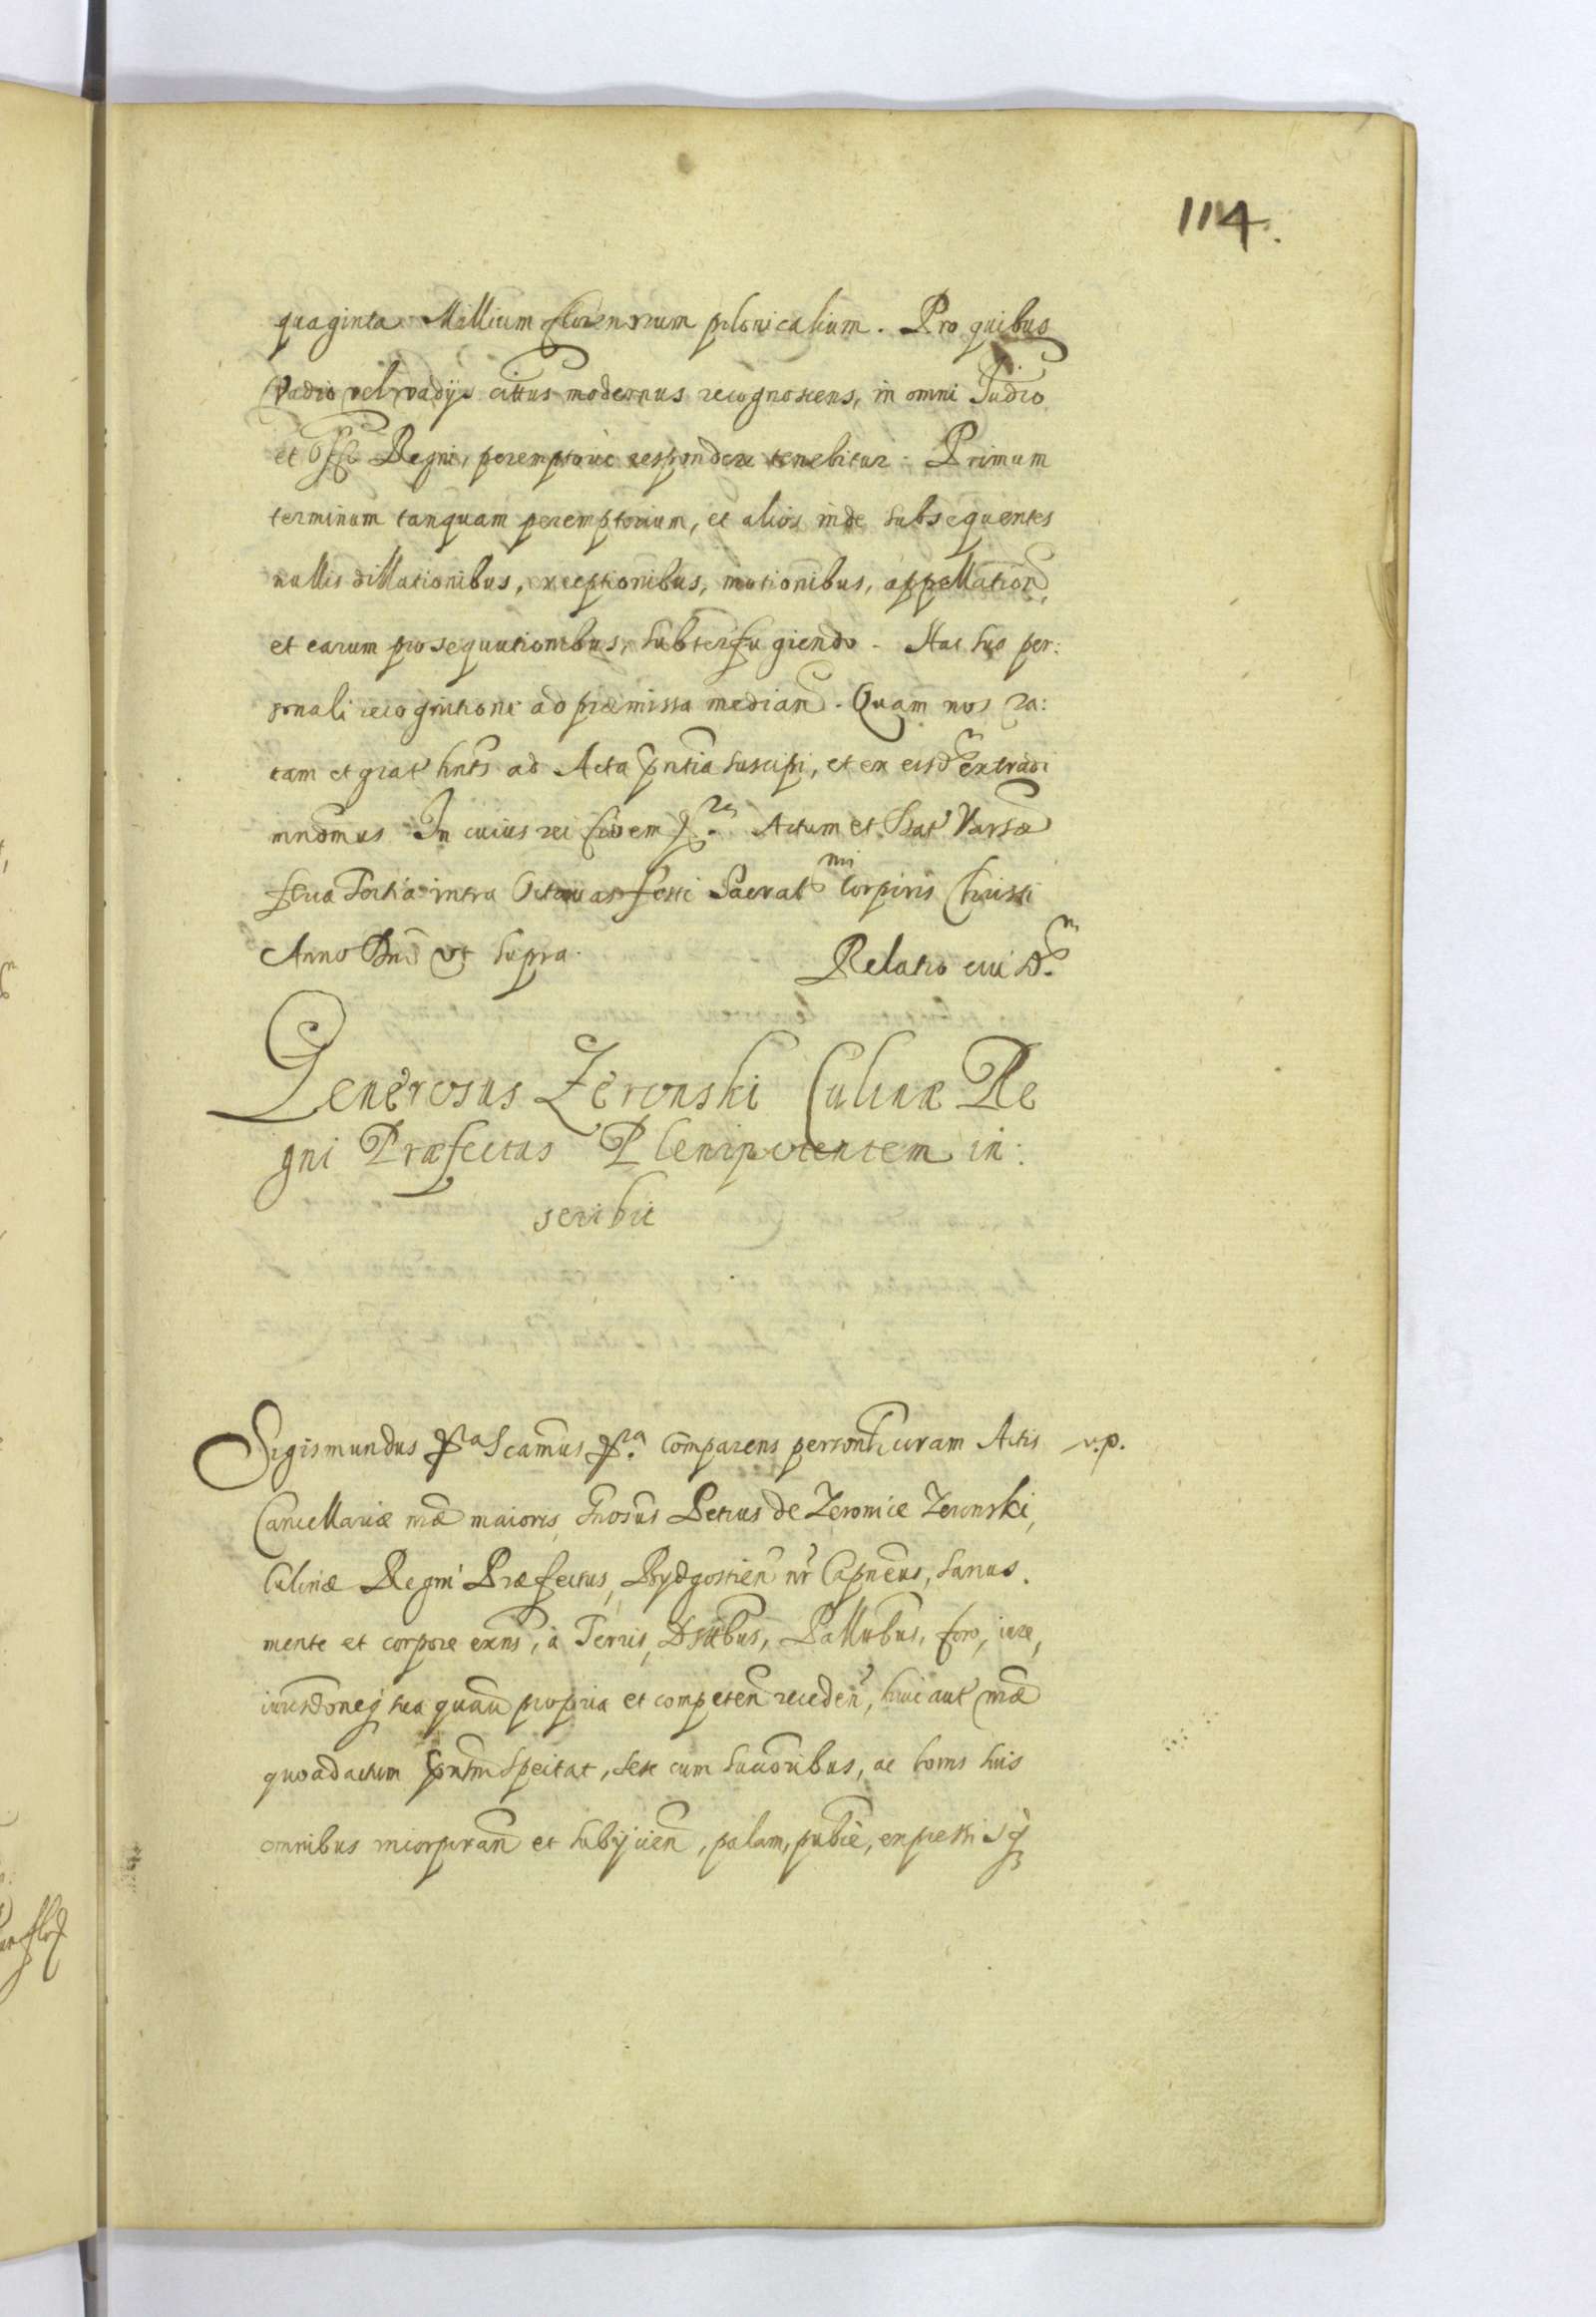 114.
quaginta Millium florenorum polonicalium. Pro quibus
Vadio vel vadijs cittus modernus recognoscens, in omni Judio
et Offo Regni, peremptorie respondere tenebitur. Primum
terminum tanquam peremptorium, et alios inde subsequentes
nullis dillationibus, exceptionibus, motionibus, appellation,
et earum prosequutionibus, subterfugiendo. Hac sua per:
sonali recognitione ad præmissa median. Quam nos ra:
tam et grat hnts ad Acta pntia suscipi, et ex eisdem extradi
mndmus In cuius rei fidem Actum et Dat Varsæ
feria Tertia intra Octauas festi Sacratmi Corporis Christi
Anno Dni vt supra. Relatio eiusdem
Generosus Zeronski Culinæ Re
gni Præfectus Plenipotentem in:
scribit
Sigismundus &ra Scamus &ra. Comparens personlr coram Actis v.p.
Cancellariæ næ maioris, Gnosus Petrus de Zeronice Zeronski,
Culinæ Regni Præfectus, Bydgostien nr Capneus, sanus
mente et corpore exns, à Terris, Dstrbus, Pallubus, foro, iure,
iurisdoneq sua quaui propria et competen receden, huic aut næ
quoad actum pntm spectat, sese cum succoribus, ac bonis suis
omnibus incorporan et subijcien, palam, publcè, expressisq